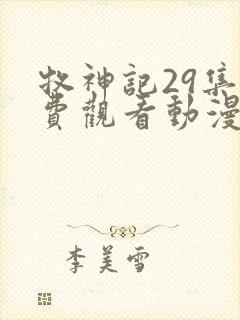 牧神記29集
費觀看動漫
李美雪